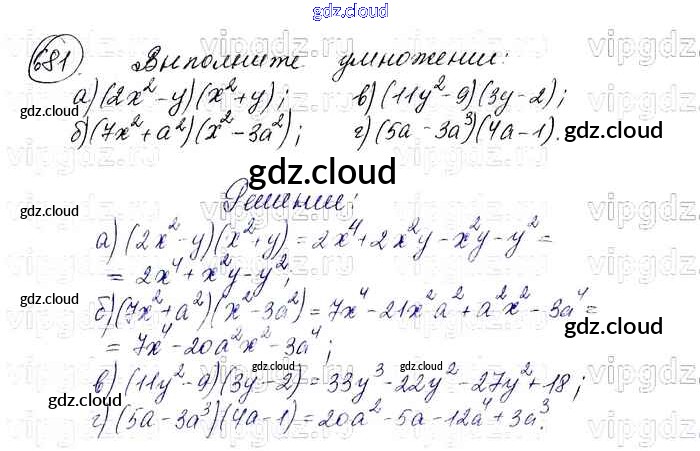 gdz.cloud
681. Выполните умножение:
а) (2x² - y)(x² + y); в) (11y² - 9)(3y - 2);
gdz.cloud
б) (7x² + a²)(x² - 3a²); г) (5a - 3a³)(4a - 1).
gdz.cloud
gdz.cloud
Решение:
gdz.cloud
а) (2x² - y)(x² + y) = 2x⁴ + 2x²y - x²y - y² =
= 2x⁴ + x²y - y²;
gdz.cloud
б) (7x² + a²)(x² - 3a²) = 7x⁴ - 21x²a² + a²x² - 3a⁴ =
gdz.cloud
= 7x⁴ - 20a²x² - 3a⁴;
gdz.cloud gdz.cloud
в) (11y² - 9)(3y - 2) = 33y³ - 22y² - 27y² + 18;
gdz.cloud
г) (5a - 3a³)(4a - 1) = 20a² - 5a - 12a⁴ + 3a³.
gdz.cloud